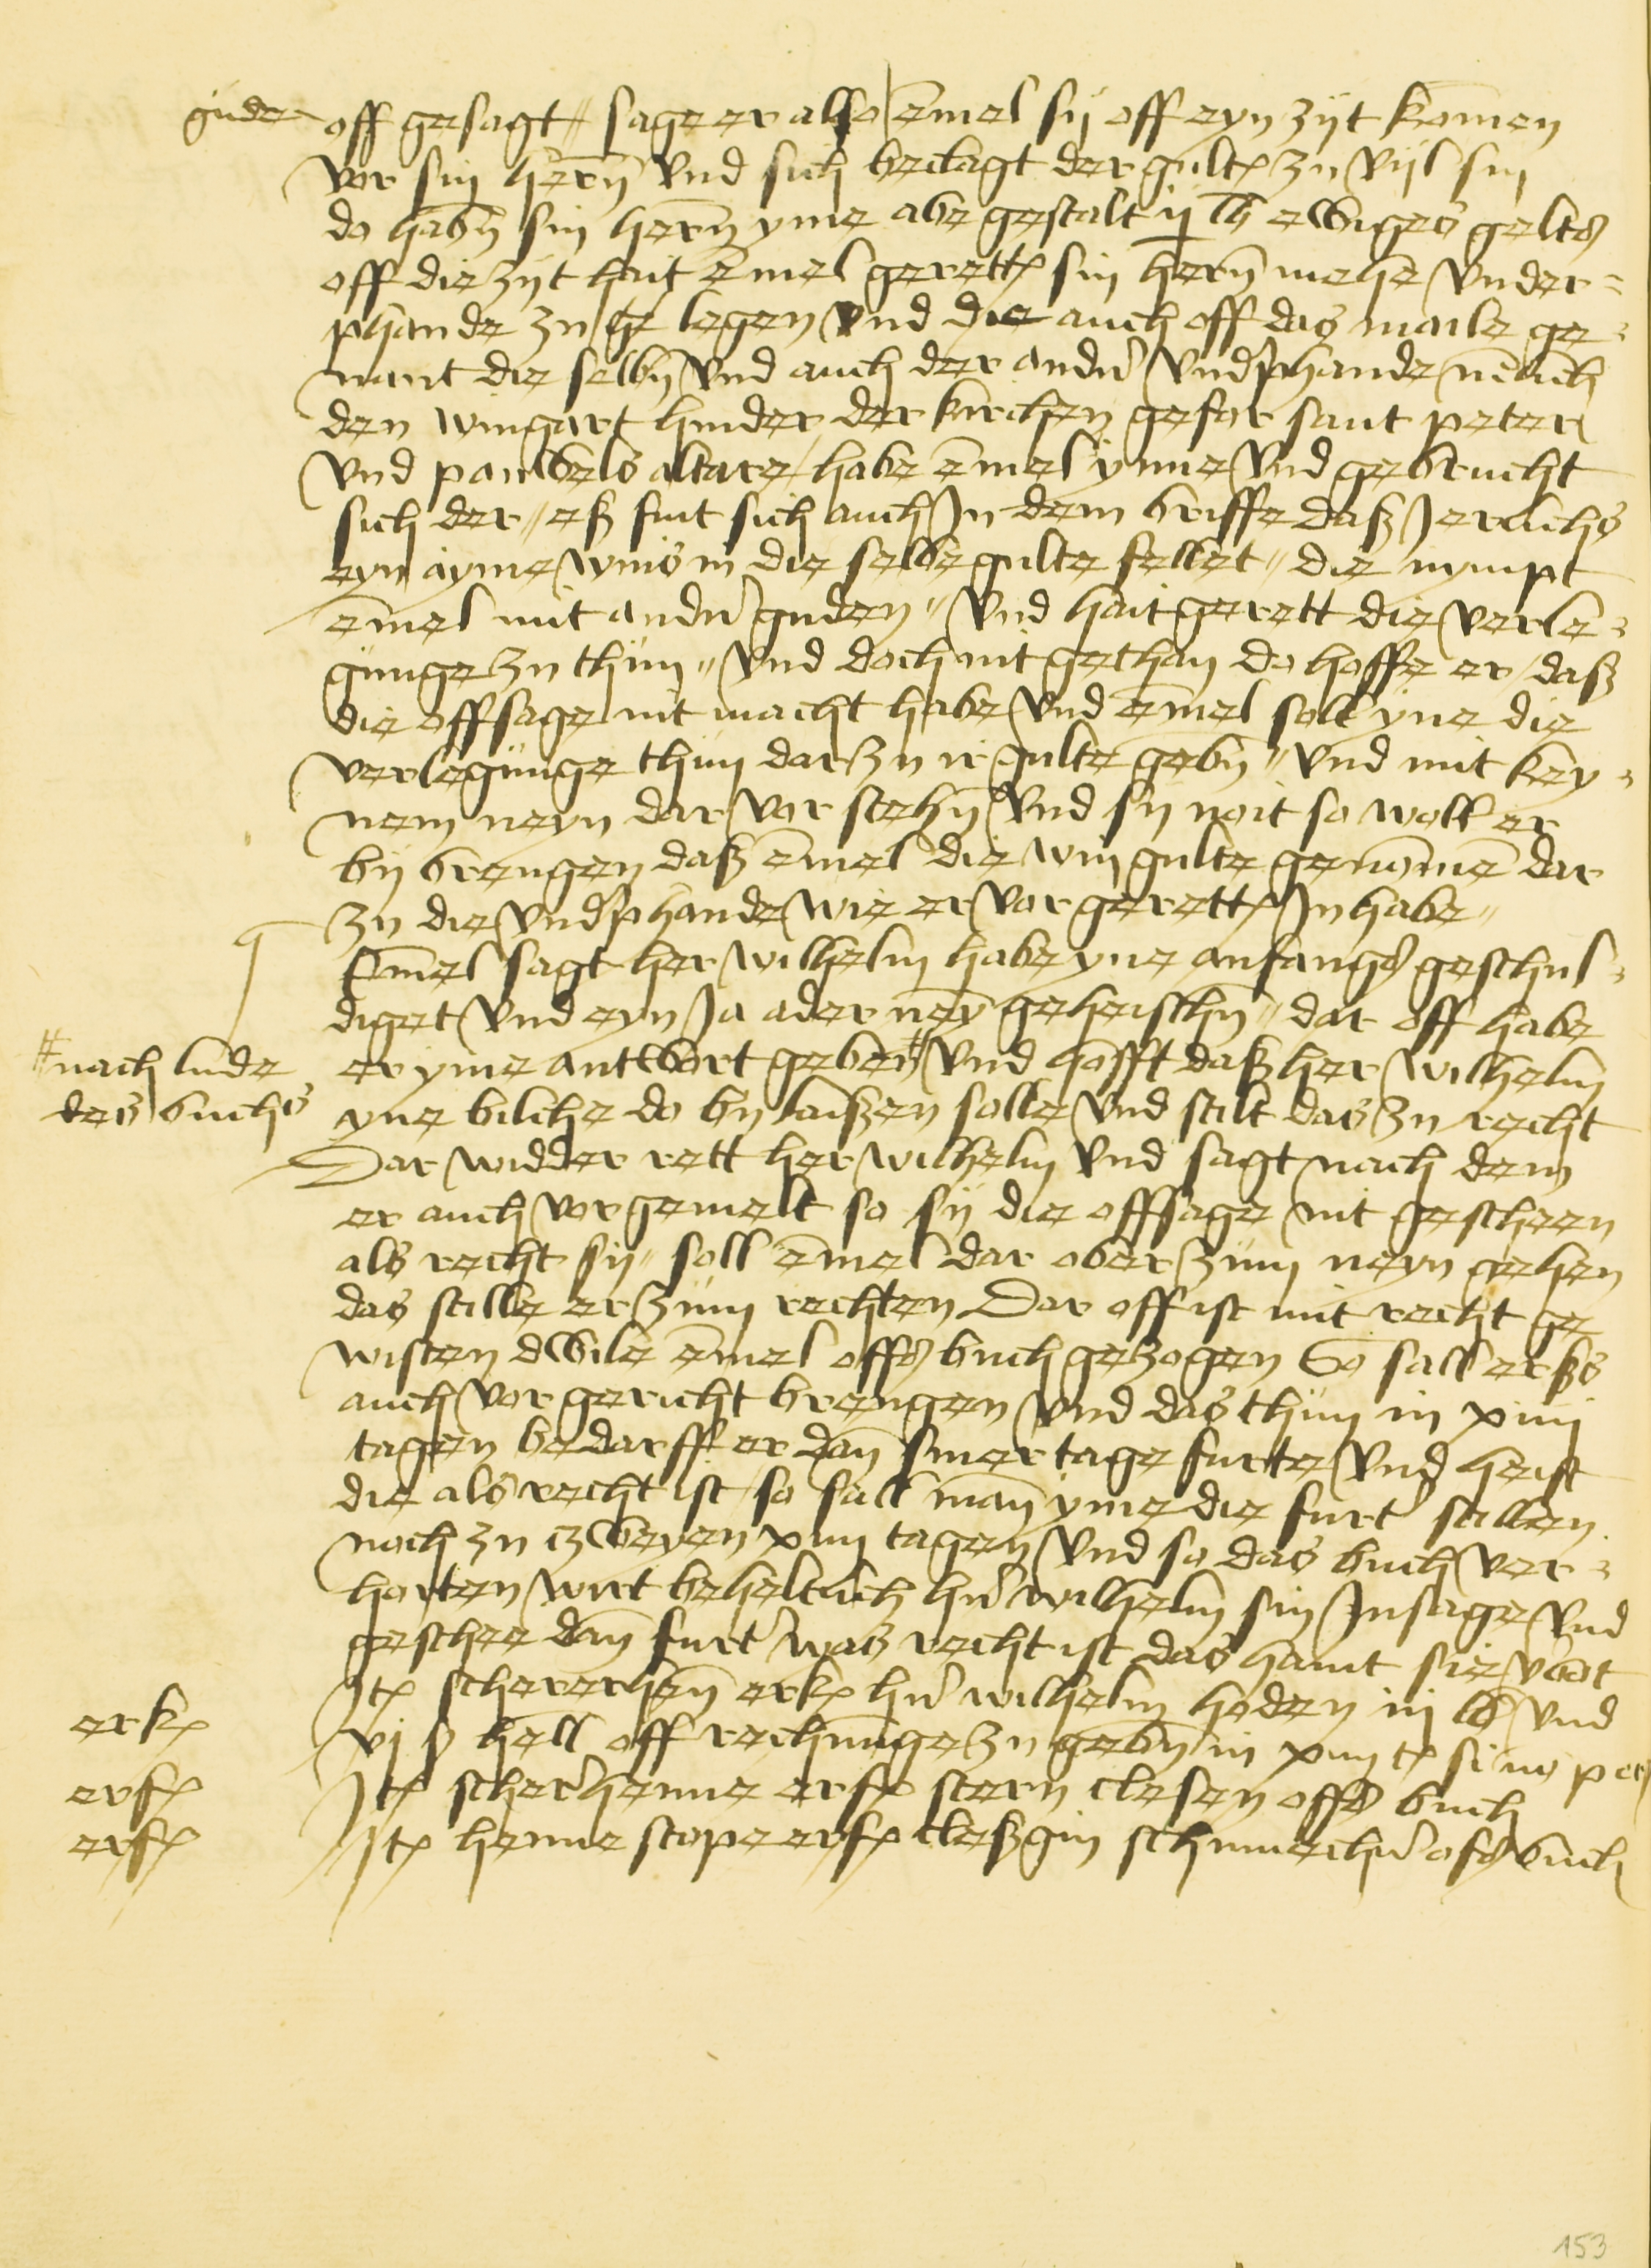 gude off gesagt // sage er also emel sij off eyn zijt komen
vor sin hern vnd sich beclagt der gult zu vijl sin
do habn sin hern yme abe gestalt ij lb ewiges gelts
off die zijt hait emel gerett sin hern mehe vnder=
phande zu legen vnd die auch off das maile ge=
nant die selbn vnd auch der ander vnderphande nemlich
den wingart hinder der kirchen gefor sant peter
vnd pauwels altare / habe emel ynne vnd gebrucht
sich der // eß fint sich auch in dem briffe daß Jerlichs
eyn ayme wins in die selbe gulte fellet // die nympt
emel mit ander guden // vnd hait gerett die verle=
gunge zu thun // vnd doch nit gethan do hoffe er / daß
die offsage nit macht habe vnd emel soll yne die
verlegunge thun dar zu ir gulte gebn // vnd mit key=
nem neyn dar vor stehn vnd sy noit so woll er
bij brengen daß emel die win gulte genomme dar
zu die vnderphande wie er vor gerett Inhabe //
Emel sagt her wilhelm habe yne anfangs geschul=
diget vnd eyn Ja ader ney geheischn // dar off habe
er yme antwort geben # vnd hofft daß her wilhelm
#nach lude
des buchs
yne bilche do by laißen solle vnd stilt das zu recht
Dar widder rett her wilhelm vnd sagt nach dem
er auch vor gemelt so sij die offsage nit gescheen
als recht sij // soll emel dar ober zum neyn gehen
das stille er zum rechten Dar off ist mit recht ge
wisten dwile emel offs buch gezogen So sall erß
auch vor gericht brengen vnd das thun in xiiij
tagen bedarff er dan siner tage furter vnd heist
die als recht ist / so sall man yme die furter stillen
noch zu zweyen xiiij tagen vnd so das buch ver=
horten wirt beheltlich her wilhelm sin Insage vnd
geschee dan furter was recht ist das hant sie vorbot
erk Jt scherer hen erk her wilhelm hoden iij lb vnd
vj ß hell off rechnunge zu gebn in xiiij t si no p
erf Jt scherer henne erf stern clesen offs buch
erf Jt henne stope erf cleßgin schumecher ofs buch
153